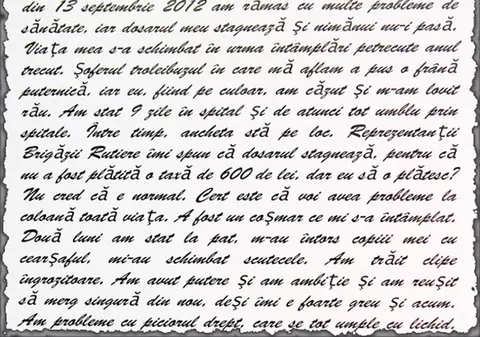 din 13 septembrie 2012 am rămas cu multe probleme de
sănătate, iar dosarul meu stagnează și nimănui nu-i pasă.
Viața mea s-a schimbat în urma întâmplări petrecute anul
trecut. Șoferul troleibuzul în care mă aflam a pus o frână
puternică, iar eu, fiind pe culoar, am căzut și m-am lovit
rău. Am stat 9 zile în spital și de atunci tot umblu prin
spitale. Între timp, ancheta stă pe loc. Reprezentanții
Brigăzii Rutiere îmi spun că dosarul stagnează, pentru că
nu a fost plătită o taxă de 600 de lei, dar eu să o plătesc?
Nu cred că e normal. Cert este că voi avea probleme la
coloană toată viața. A fost un coșmar ce mi s-a întâmplat.
Două luni am stat la pat, m-au întors copiii mei cu
cearșaful, mi-au schimbat scutecele. Am trăit clipe
îngrozitoare. Am avut putere și am ambiție și am reușit
să merg singură din nou, deși îmi e foarte greu și acum.
Am probleme cu piciorul drept, care se tot umple cu lichid.